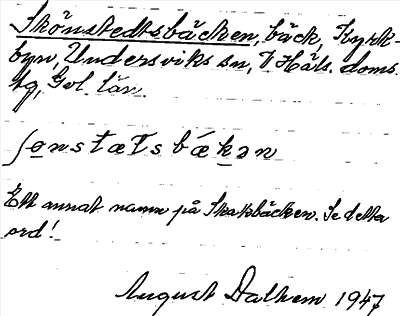 Skönstedtsbäcken, bäck, Kyrk-
byn, Undersviks sn, V. Häls. doms.
tg, Gvl. län.
ʃønstætsbækən
Ett annat namn på Skatbäcken. Se detta
ord!
August Dalhem 1947